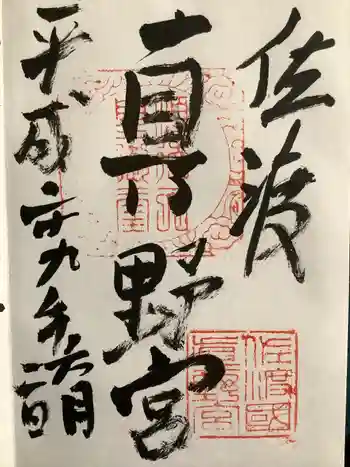 佐渡
真野宮
平成廿九年六月一日
佐渡國
真野宮